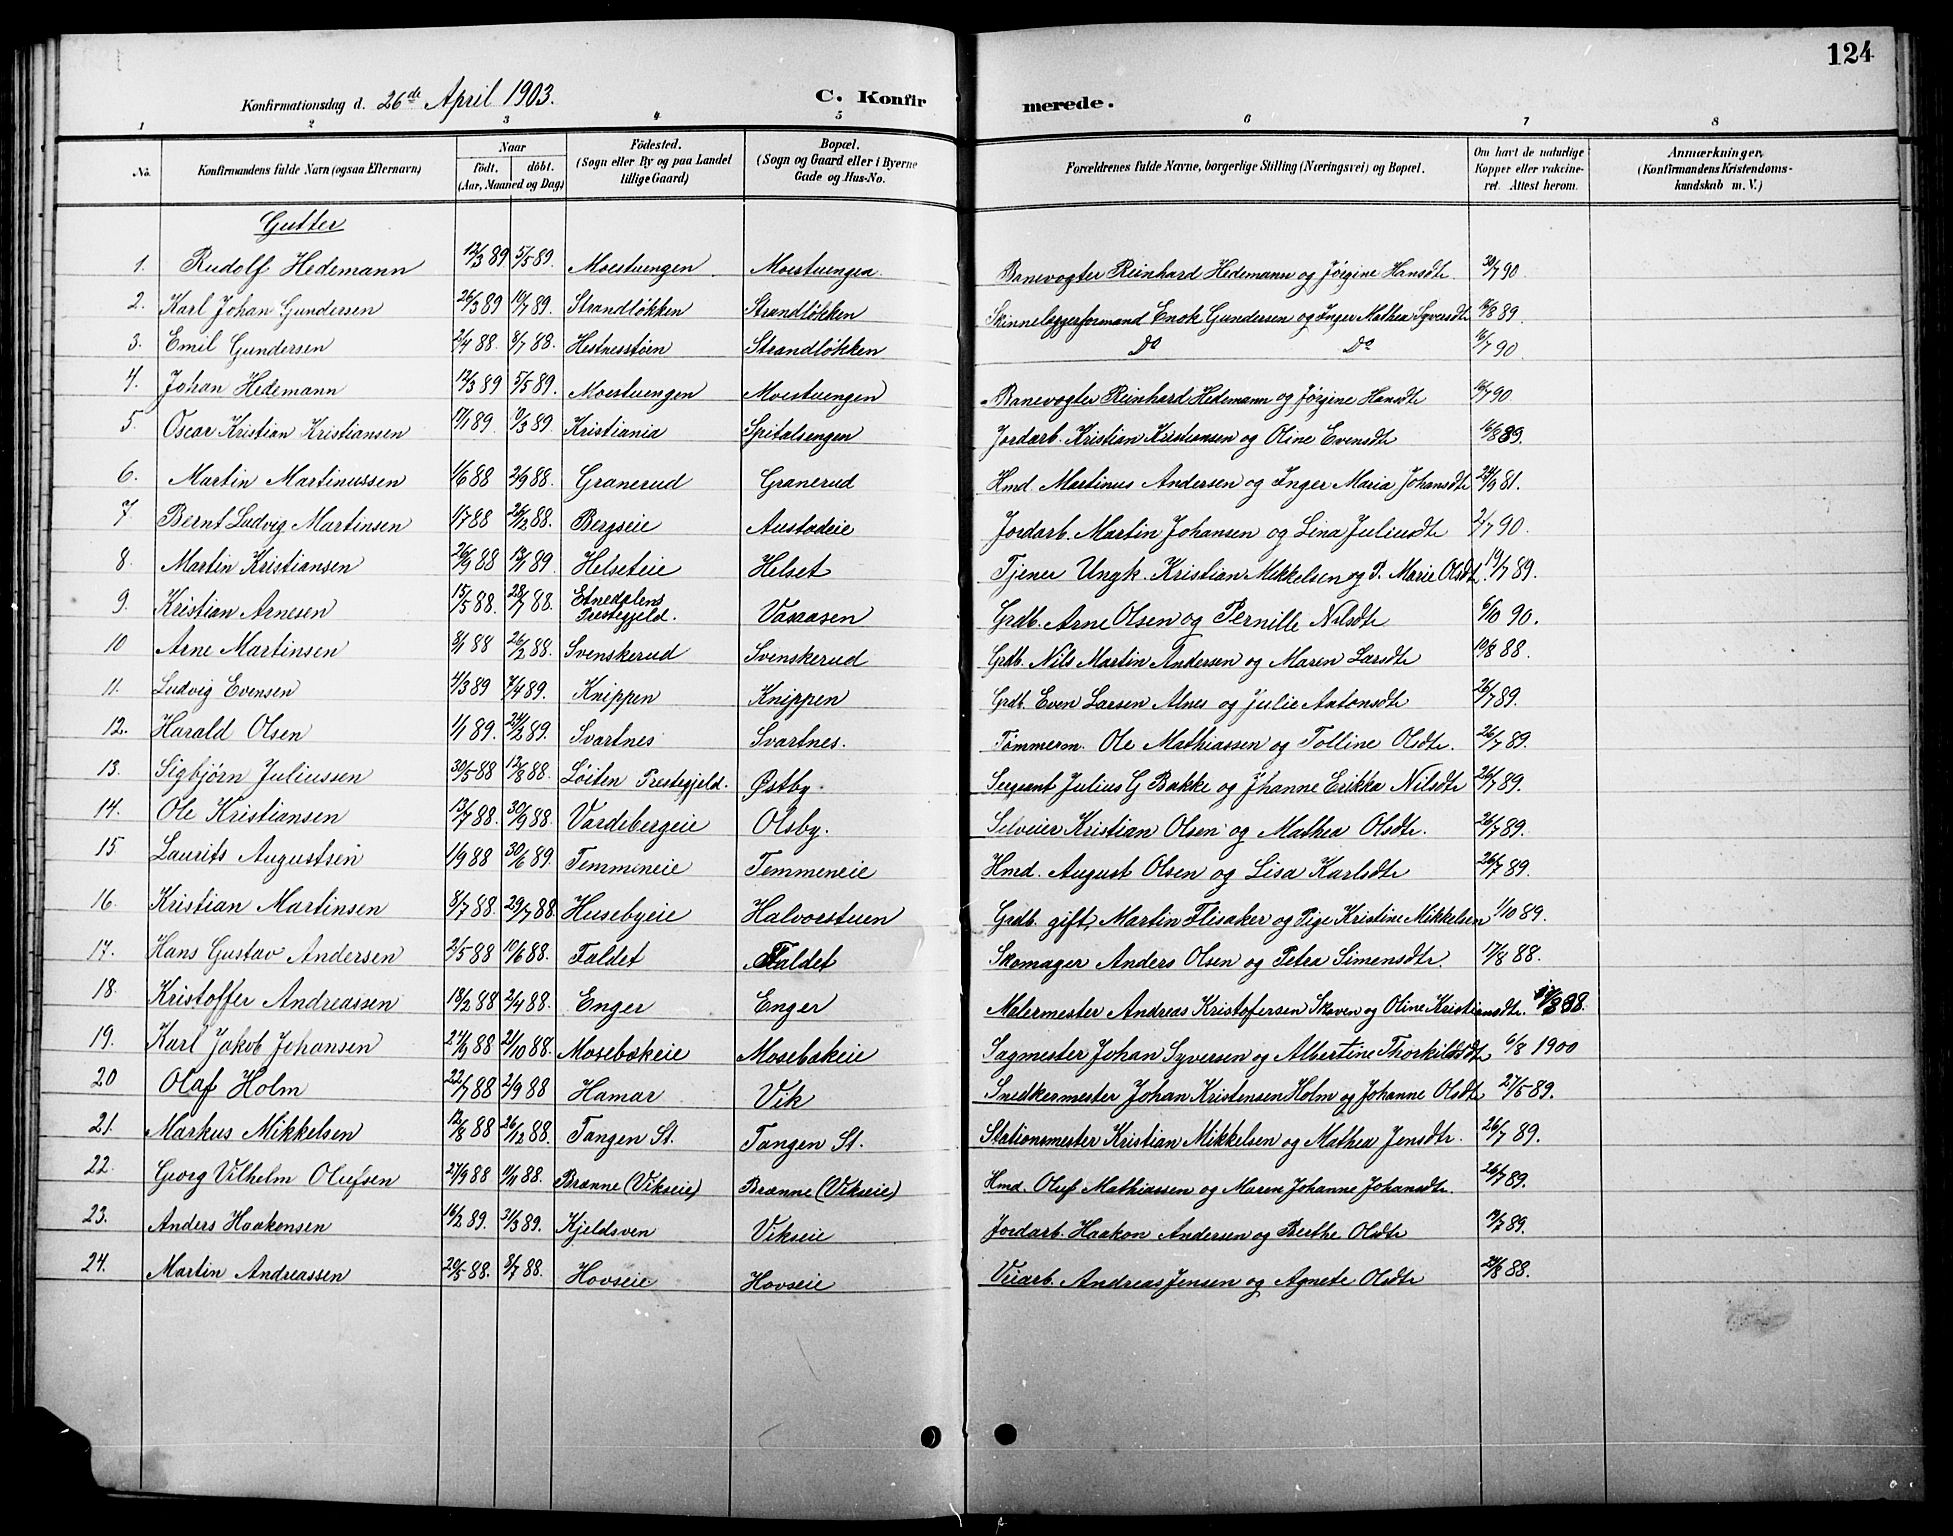 124
Konfirmationsdag d. 26de April 1903. C. Konfirmerede.
1 2 3 4 5 6 7 8
No. Konfirmandens fulde Navn (ogsaa Efternavn) Naar födt. döbt. (Aar, Maaned og Dag) Födested. (Sogn eller By og paa Landet tillige Gaard) Bopæl. (Sogn og Gaard eller i Byerne Gade og Hus-No. Forældrenes fulde Navne, borgerlige Stilling (Næringsvei) og Bopæl. Om havt de naturlige Kopper eller vakcineret. Attest herom. Anmærkninger, (Konfirmandens Kristendomskundskab m. V.)
Gutter
1. Rudolf Hedemann 12/3 89 5/5 89. Moestuengen Moestuengen Banevogter Reinhard Hedemann og Jørgine Hansdtr 30/7 90
2. Karl Johan Gundersen 26/3 89 10/7 89. Strandløkken Strandløkken Skinnelæggerformand Enok Gundersen og Inger Mathea Syversdtr 16/8 89.
3. Emil Gundersen 2/4 88. 8/7 88. Hestnesstøen Strandløkken Do Do 16/7 90
4. Johan Hedemann 12/3 89 5/5 89. Moestuengen Moestuengen Banevogter Reinhard Hedemann og Jørgine Hansdtr 16/7 90
5. Oscar Kristian Kristiansen 17/1 89. 9/3 89. Kristiania Spitalsengen Jordarb. Kristian Kristiansen og Oline Evensdtr 16/8 89.
6. Martin Martinussen 1/6 88 2/9 88. Granerud Granerud Hmd. Martinus Andersen og Inger Maria Johansdtr 24/9 81.
7. Bernt Ludvig Martinsen 1/7 88 26/12 88. Bergseie Austadeie Jordarb. Martin Johansen og Lina Juliusdtr 2/7 90.
8. Martin Kristiansen 26/9 88 12/7 89. Helseteie Helset Tjener Ungk. Kristian Mikkelsen og P. Marie Olsdt. 19/7 89.
9. Kristian Arnesen 15/5 88. 28/7 88. Etnedalens Prestegjeld. Vaaasen Grdb. Arne Olsen og Pernille Nilsdtr 6/10 90.
10 Arne Martinsen 8/1 88 26/2 88. Svenskerud Svenskerud Grdb. Nils Martin Andersen og Maren Larsdtr 19/8 88.
11. Ludvig Evensen 4/3 89 7/4 89. Knippen Knippen Grdb. Even Larsen Alnes og Julie Antonsdtr 26/7 89.
12. Harald Olsen 1/1 89. 24/2 89. Svartnes Svartnes. Tømmerm. Ole Mathiassen og Tolline Olsdtr. 26/7 89.
13. Sigbjørn Juliussen 30/5 88 12/8 88. Løiten Prestegjeld. Østby. Sergeant Julius G Bakke og Jhanne Erikka Nilsdtr 26/7 89.
14. Ole Kristiansen 13/7 88. 30/9 88 Vardebergeie Olsby. Selveier Kristian Olsen og Mathea Olsdtr. 26/7 89.
15 Laurits Augustsen 1/9 88 30/6 89. Temmeneie Temmeneie Hmd. August Olsen og Lisa Karlsdtr 26/7 89.
16. Kristian Martinsen 8/7 88. 29/7 88. Husebyeie Halvorstuen Grdb. gift, Martin Flisaker og Pige Kristine Mikkelsen 1/10 89.
17. Hans Gustav Andersen 2/5 88 10/6 88. Faldet Faldet Skomager Anders Olsen og Petra Simensdtr. 17/8 88.
18. Kristoffer Andreassen 13/2 88 2/4 88. Enger Enger Malermester Andreas Kristofersen Skaven og Oline Kristiansdtr. 88.
19. Karl Jakob Johansen 24/9 88 21/10 88. Mosebækeie Mosebækeie Sagmester Johan Syversen og Albertine Thorkildsdtr 6/8 1900
20 Olaf Holm 22/7 88 2/9 88 Hamar Vik Snedkermester Johan Kristensen Holm og Johanne Olsdtr 27/5 89.
21. Markus Mikkelsen 12/8 88 26/12 88. Tangen St. Tangen St. Stationsmester Kristian Mikkelsen og Mathea Jensdtr. 26/7 89.
22. Georg Vilhelm Olufsen 27/9 88 11/11 88. Brænne (Vikseie) Brænne (Vikseie) Hmd. Oluf Mathiassen og Maren Johanne Johansdtr. 26/7 89.
23. Anders Haakensen 16/2 89. 31/3 89. Kjeldsven Vikseie Jordarb. Haakon Andersen og Berthe Olsdtr 19/7 89.
24. Martin Andreassen 20/5 88. 8/7 88. Hovseie Hovseie Veiarb. Andreas Jensen og Agnete Olsdtr 21/8 88.